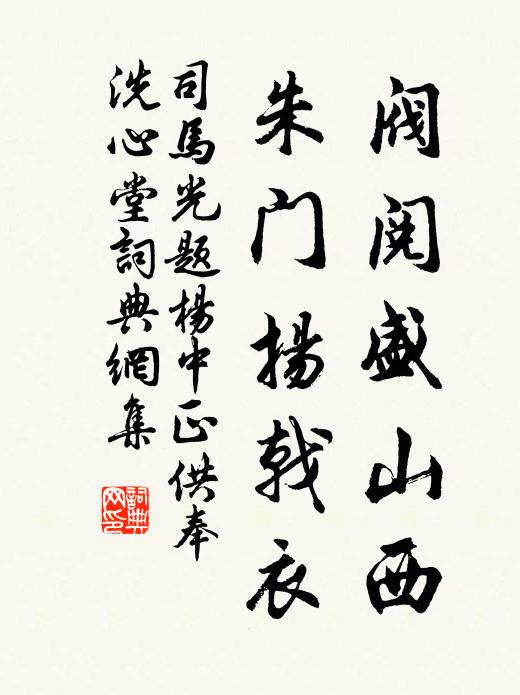 閥閱盛山西
朱門揚戟衣
司馬光題楊中正供奉
洗心堂詞典網集
詞典網印